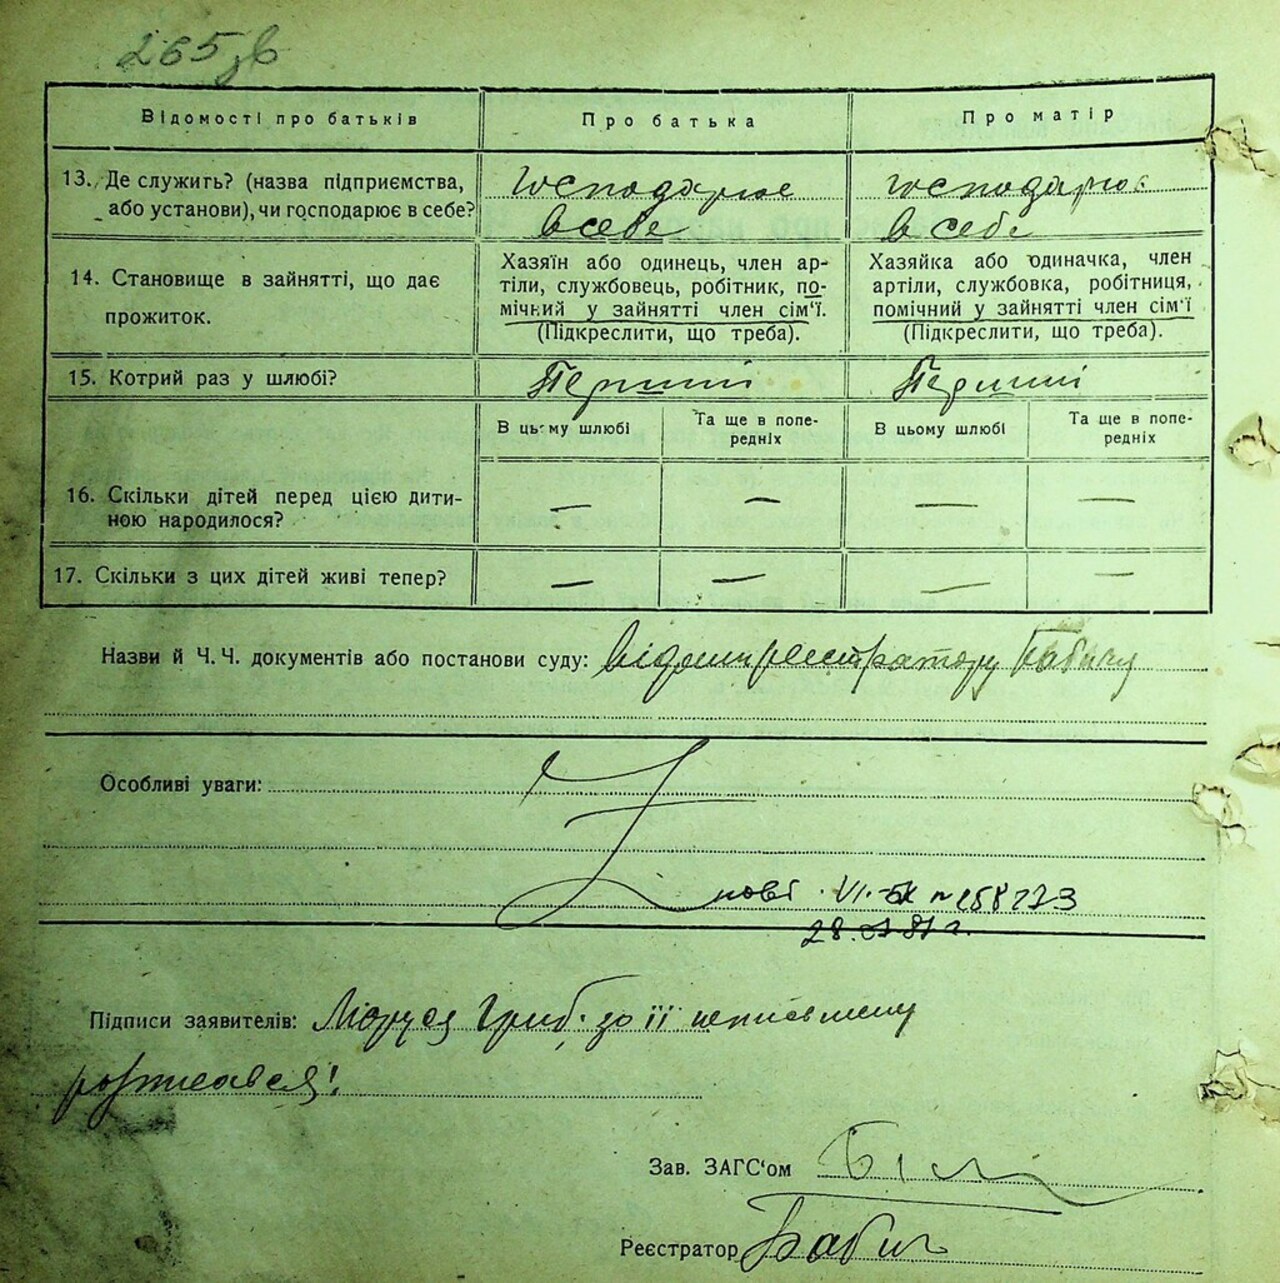 265 зв
Відомості про батьків
Про батька
Про матір
13. Де служить? (назва підприємства,
або установи), чи господарює в себе?
господарює
в себе
господарює
в себе
14. Становище в зайнятті, що дає
прожиток.
Хазяїн або одинець, член ар-
тіли, службовець, робітник, по-
мічний у зайнятті член сім'ї.
(Підкреслити, що треба).
Хазяйка або одиначка, член
артіли, службовка, робітниця,
помічний у зайнятті член сім'ї
(Підкреслити, що треба).
15. Котрий раз у шлюбі?
Перший
Перший
В цьому шлюбі
Та ще в попе-
редніх
В цьому шлюбі
Та ще в попе-
редніх
16. Скільки дітей перед цією дити-
ною народилося?
— — — —
17. Скільки з цих дітей живі тепер?
— — — —
Назви й Ч. Ч. документів або постанови суду: відомі реєстратору
Особливі уваги:
повт. VI-БК № 158773
Підписи заявителів: Маруся Гриб. за її неписьмену
розписався!
Зав. ЗАГС'ом
Реєстратор Бабич